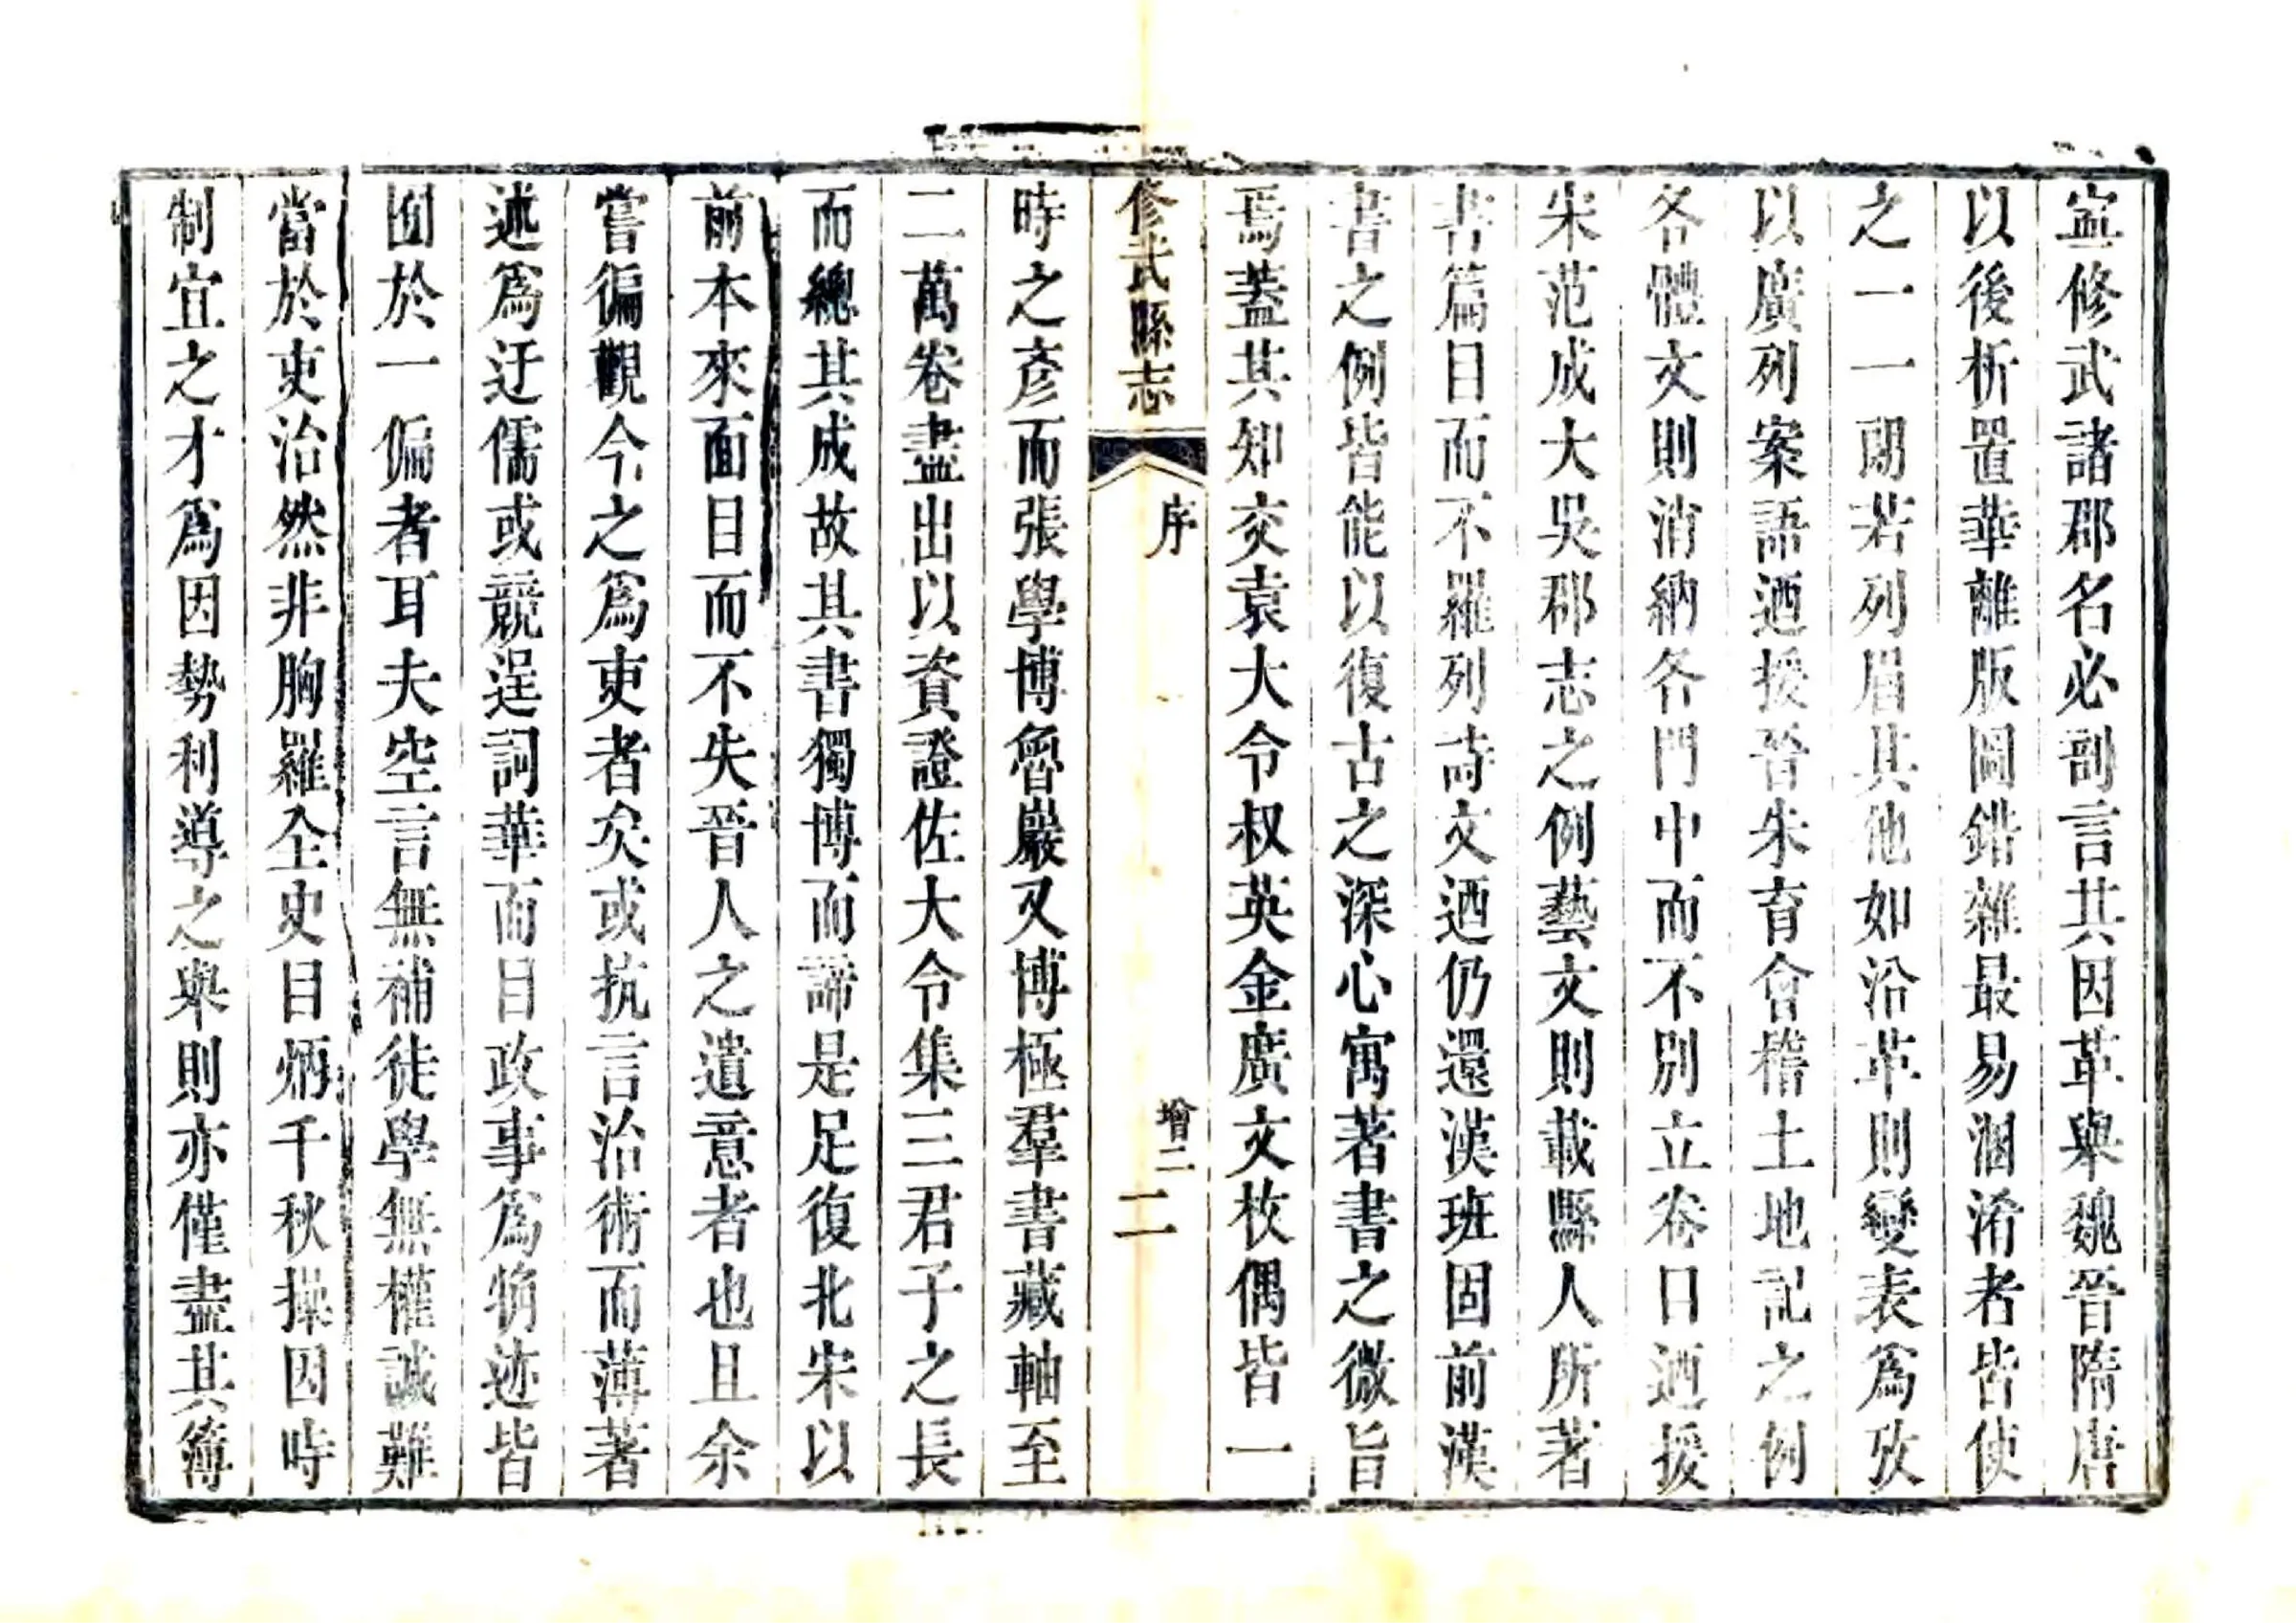 寍修武諸郡名必剖言其因革與魏晉隋唐
以後析置華離版圖錯雜最易溷淆者皆使
之一一朗若列眉其他如沿革則變表爲攷
以廣列案語迺援晉朱育會稽土地記之例
各體文則消納各門中而不別立卷目迺援
宋范成大吳郡志之例藝文則載縣人所著
書篇目而不羅列詩文迺仍還漢班固前漢
書之例皆能以復古之深心寓著書之微旨
焉蓋其知交袁大令权英金廣文枚偶皆一
修武縣志
序
增二
二
時之彥而張學博魯巖又博極羣書藏軸至
二萬卷盡出以資證佐大令集三君子之長
而總其成故其書獨博而諦是足復北宋以
前本來面目而不失晉人之遺意者也且余
嘗徧觀今之爲吏者矣或抗言治術而薄著
述爲迂儒或競逞詞華而目政事爲粗迹皆
囿於一偏者耳夫空言無補徒學無權誠難
當於吏治然非胸羅全史目炳千秋操因時
制宜之才爲因勢利導之舉則亦僅盡其簿